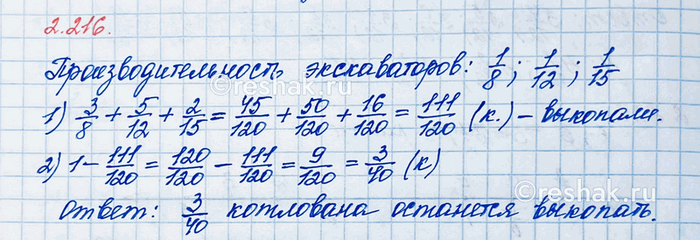 2.216.
Производительность экскаваторов: 1/8; 1/12; 1/15
1) 3/8 + 5/12 + 2/15 = 45/120 + 50/120 + 16/120 = 111/120 (к.) – выкопали.
2) 1 - 111/120 = 120/120 - 111/120 = 9/120 = 3/40 (к)
Ответ: 3/40 котлована останется выкопать.
©reshak.ru